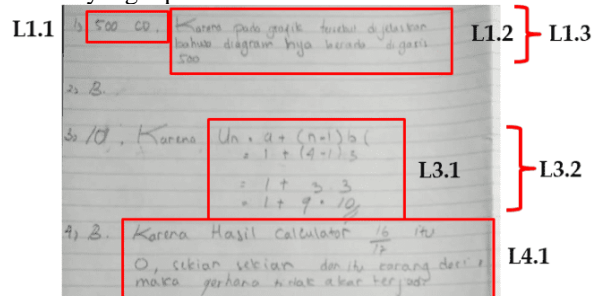 L1.1
1) 500 CD. Karena pada grafik tersebut dijelaskan
bahwa diagram nya berada digaris
500
L1.2
L1.3
2) B.
3) 10. Karena Un = a + (n-1) b (
= 1 + (4-1) 3
= 1 + 3.3
= 1 + 9 = 10
L3.1
L3.2
4) B. Karena Hasil Calculator 16/17 itu
0, sekian sekian dan itu karang dari
maka gerhana tidak akan terjadi
L4.1